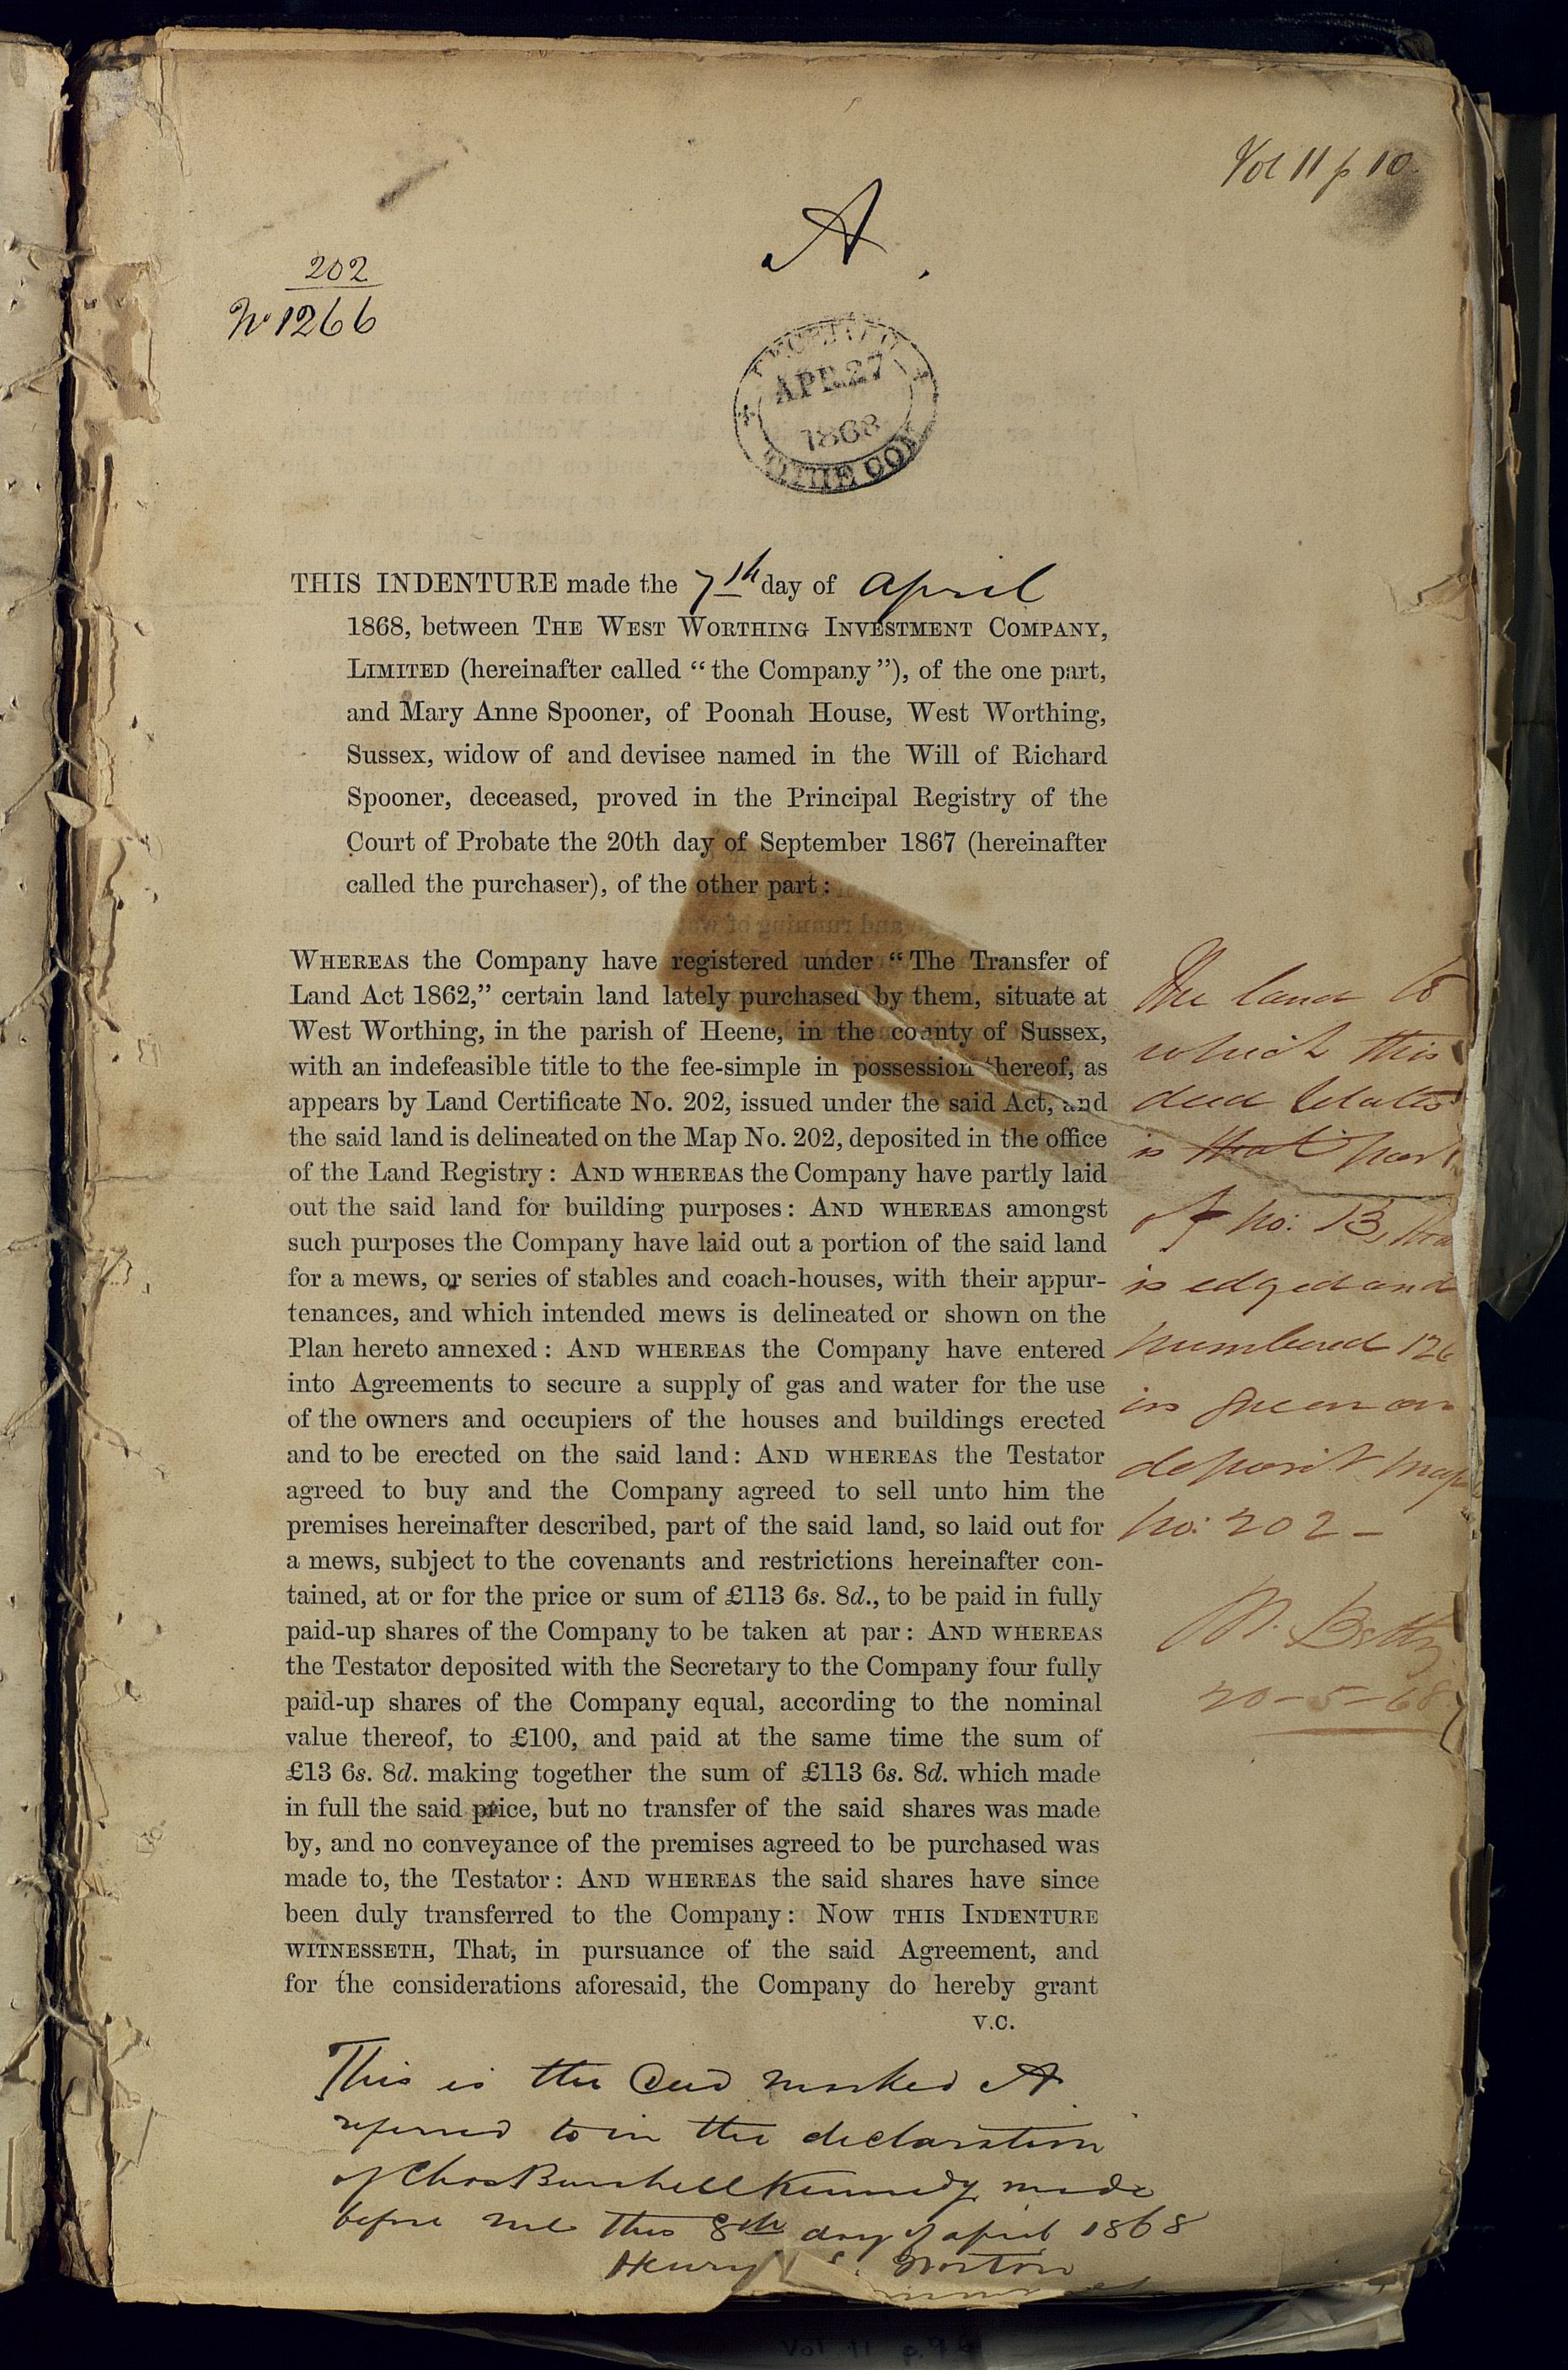 Vol 11 p 10
A
202
No 1266
APR 27
1868
THIS INDENTURE made the 7th day of April
1868, between THE WEST WORTHING INVESTMENT COMPANY,
LIMITED (hereinafter called “the Company”), of the one part,
and Mary Anne Spooner, of Poonah House, West Worthing,
Sussex, widow of and devisee named in the Will of Richard
Spooner, deceased, proved in the Principal Registry of the
Court of Probate the 20th day of September 1867 (hereinafter
called the purchaser), of the other part:
WHEREAS the Company have registered under “The Transfer of
Land Act 1862,” certain land lately purchased by them, situate at
West Worthing, in the parish of Heene, in the county of Sussex,
with an indefeasible title to the fee-simple in possession thereof, as
appears by Land Certificate No. 202, issued under the said Act, and
the said land is delineated on the Map No. 202, deposited in the office
of the Land Registry: AND WHEREAS the Company have partly laid
out the said land for building purposes: AND WHEREAS amongst
such purposes the Company have laid out a portion of the said land
for a mews, or series of stables and coach-houses, with their appur-
tenances, and which intended mews is delineated or shown on the
Plan hereto annexed: AND WHEREAS the Company have entered
into Agreements to secure a supply of gas and water for the use
of the owners and occupiers of the houses and buildings erected
and to be erected on the said land: AND WHEREAS the Testator
agreed to buy and the Company agreed to sell unto him the
premises hereinafter described, part of the said land, so laid out for
a mews, subject to the covenants and restrictions hereinafter con-
tained, at or for the price or sum of £113 6s. 8d., to be paid in fully
paid-up shares of the Company to be taken at par: AND WHEREAS
the Testator deposited with the Secretary to the Company four fully
paid-up shares of the Company equal, according to the nominal
value thereof, to £100, and paid at the same time the sum of
£13 6s. 8d. making together the sum of £113 6s. 8d. which made
in full the said price, but no transfer of the said shares was made
by, and no conveyance of the premises agreed to be purchased was
made to, the Testator: AND WHEREAS the said shares have since
been duly transferred to the Company: NOW THIS INDENTURE
WITNESSETH, That, in pursuance of the said Agreement, and
for the considerations aforesaid, the Company do hereby grant
V.C.
The land to
which this
deed relates
is that part
of No: 13, tha
is edged and
numbered 126
in green on
deposit map
No: 202 -
20-5-68
This is the Deed marked A
referred to in the declaration
of Chas Burchell Kennedy made
before me this 8th day of April 1868
Henry Norton